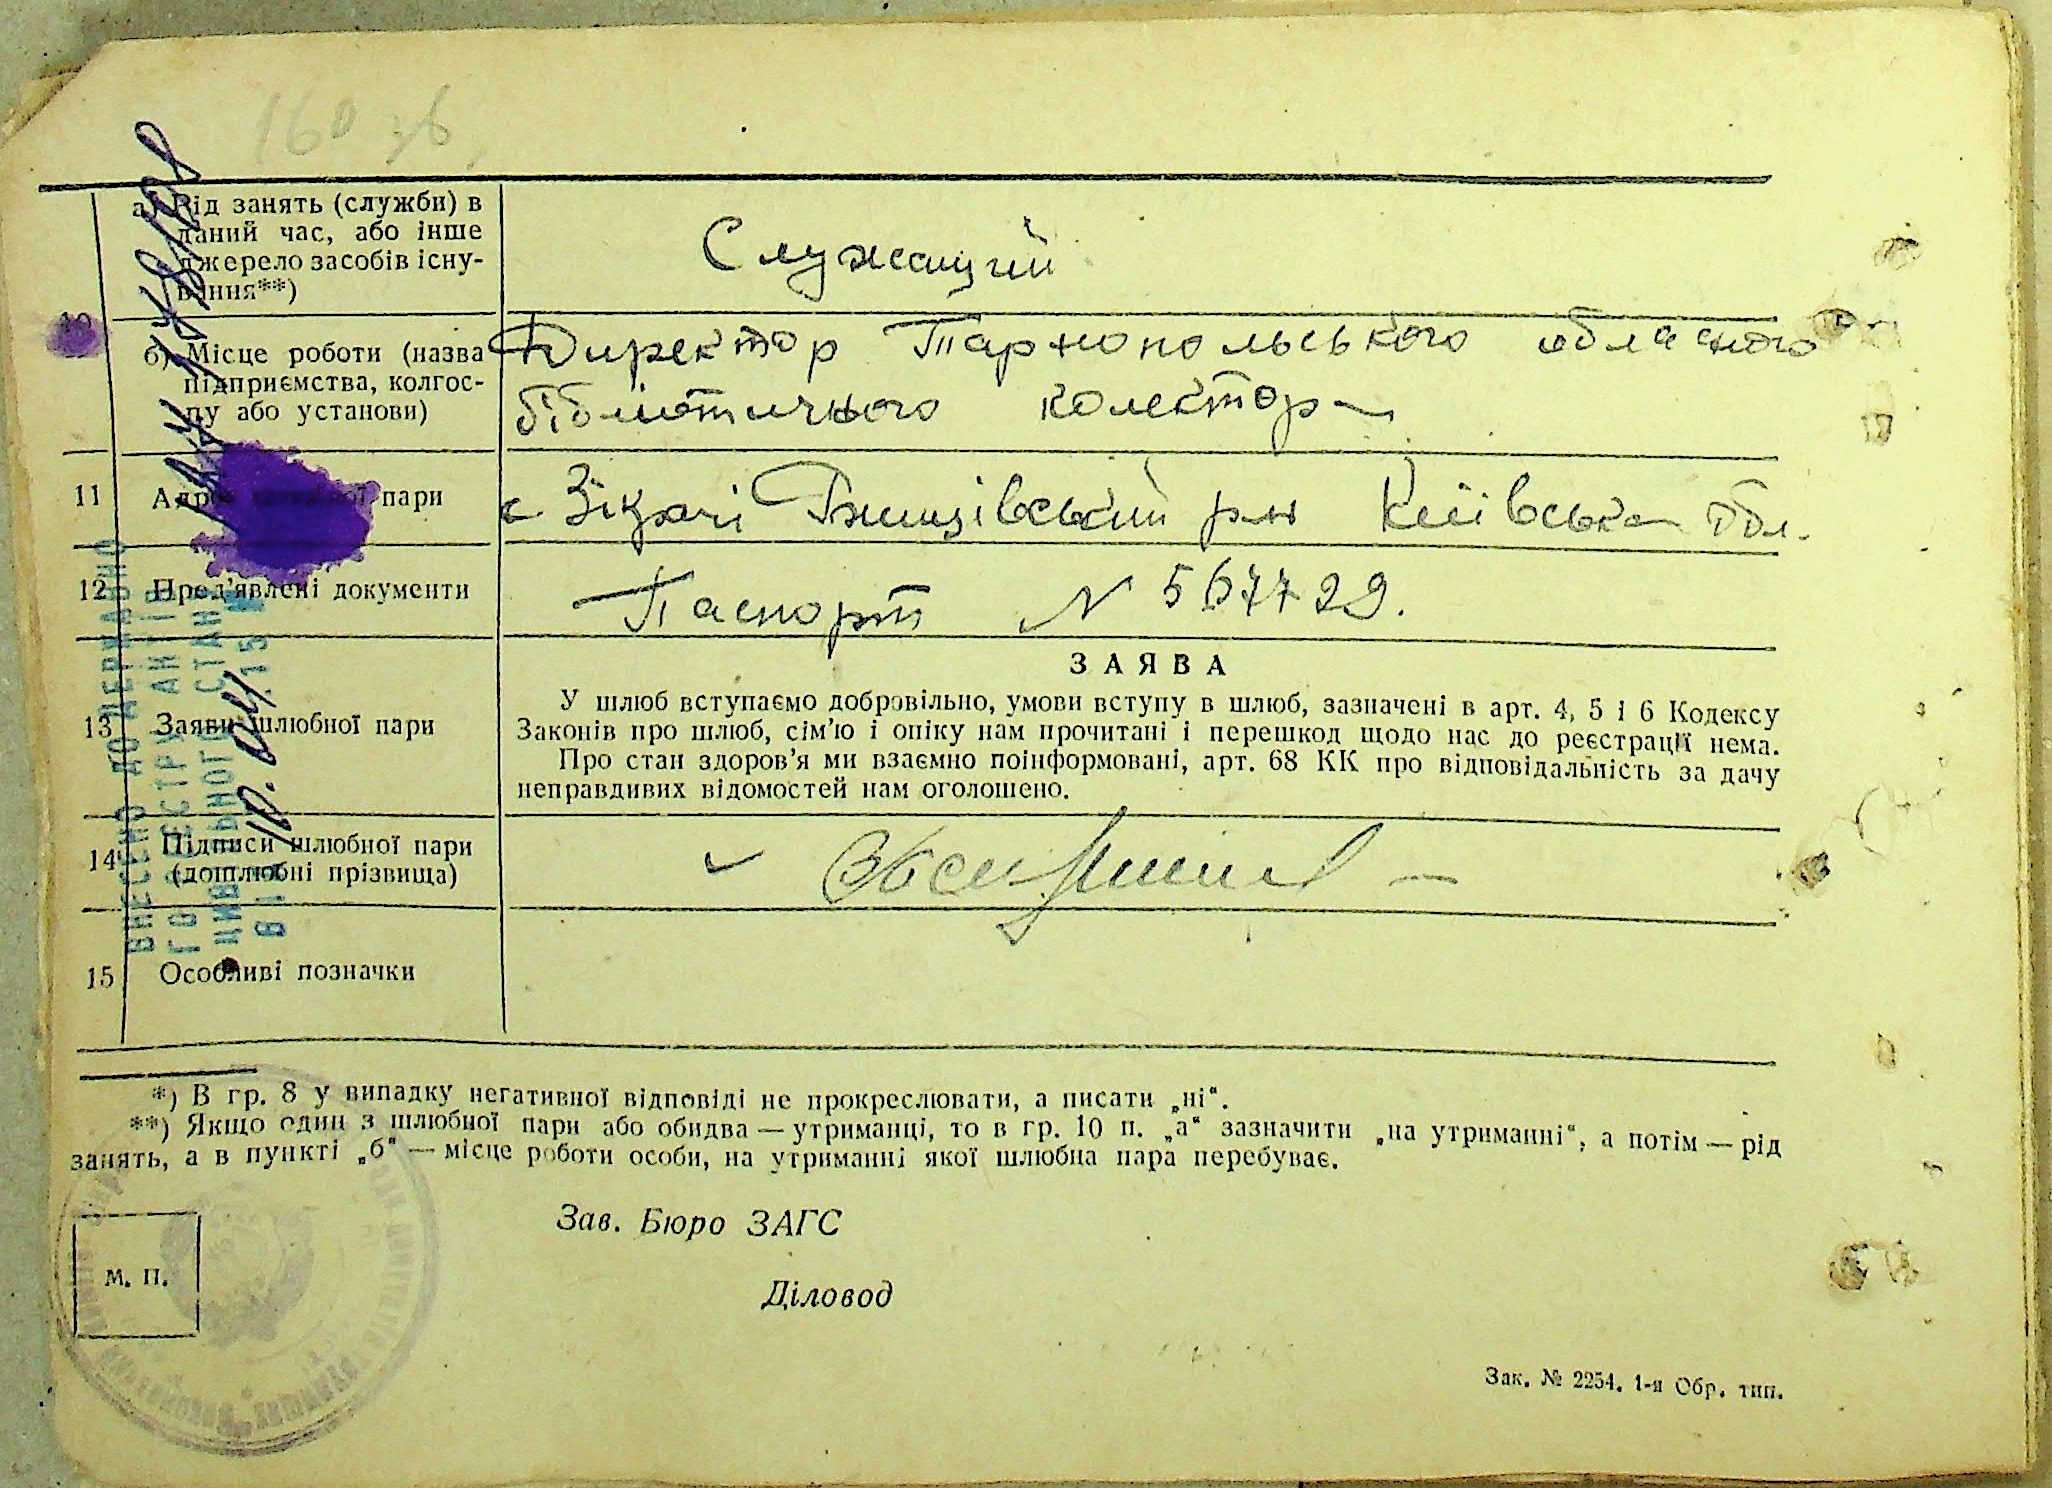 160 зв
а) Рід занять (служби) в
даний час, або інше
джерело засобів існу-
вання**)
Служащий
10
б) Місце роботи (назва
підприємства, колгос-
пу або установи)
Директор Тарнопольського обласного
бібліотичного колектора
11 Адреса шлюбної пари
с Зікрачі Ржищівський р-н Київська обл.
12 Пред'явлені документи
Паспорт N 567729.
13 Заяви шлюбної пари
ЗАЯВА
У шлюб вступаємо добровільно, умови вступу в шлюб, зазначені в арт. 4, 5 і 6 Кодексу
Законів про шлюб, сім'ю і опіку нам прочитані і перешкод щодо нас до реєстрації нема.
Про стан здоров'я ми взаємно поінформовані, арт. 68 КК про відповідальність за дачу
неправдивих відомостей нам оголошено.
14 Підписи шлюбної пари
(дошлюбні прізвища)
15 Особливі позначки
ВНЕСЕНО ДО ДЕРЖАВНО
ГО РЕЄСТРУ АКТІВ
ЦИВІЛЬНОГО СТАНУ
ВІД 10.04.15 №
*) В гр. 8 у випадку негативної відповіді не прокреслювати, а писати „ні“.
**) Якщо один з шлюбної пари або обидва — утриманці, то в гр. 10 п. „а“ зазначити „на утриманні“, а потім — рід
занять, а в пункті „б“ — місце роботи особи, на утриманні якої шлюбна пара перебуває.
Зав. Бюро ЗАГС
М. П.
Діловод
Зак. № 2254. 1-я Обр. тип.